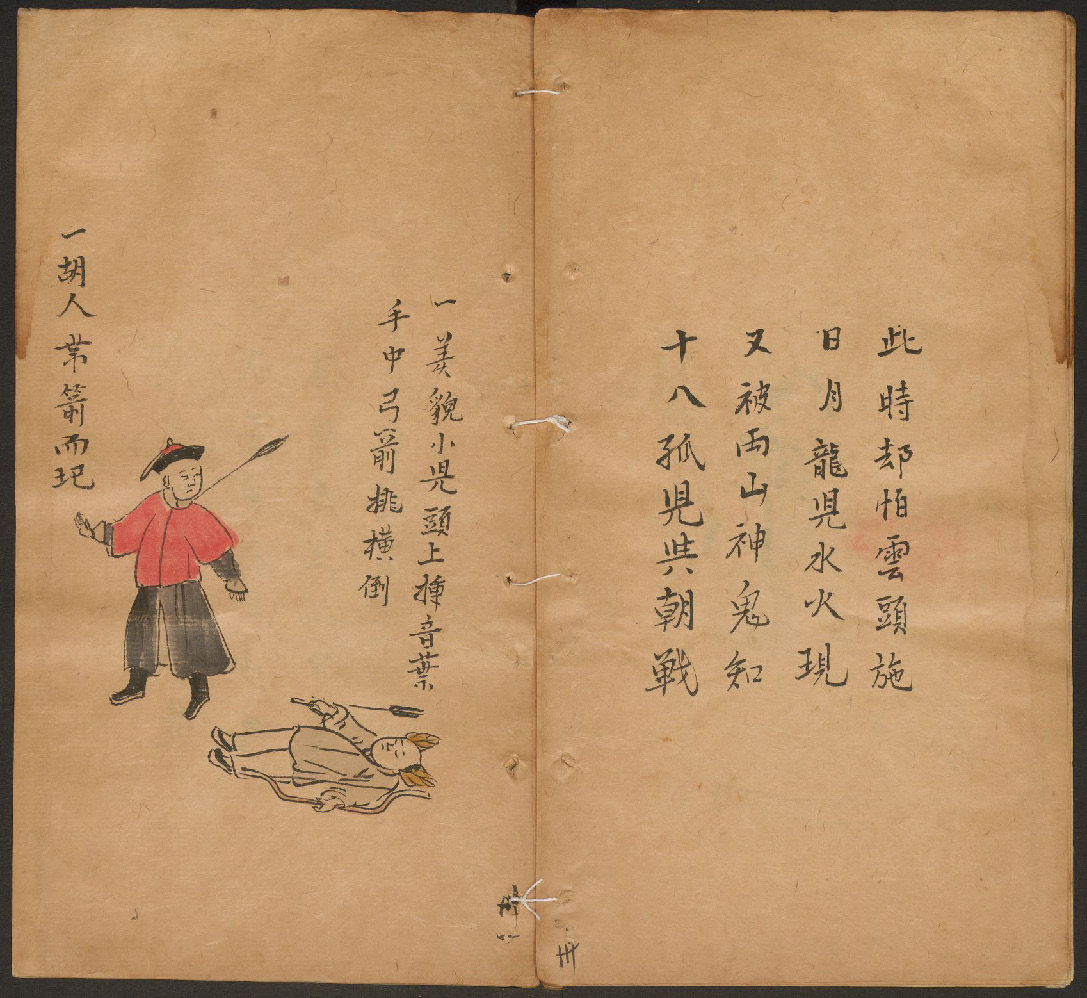 此時却怕雲頭施
日月龍児水火現
又被両山神鬼知
十八孤児共朝戦
卅
一美貌小児頭上揷音葉
手中弓箭挑横倒
一胡人帯箭而